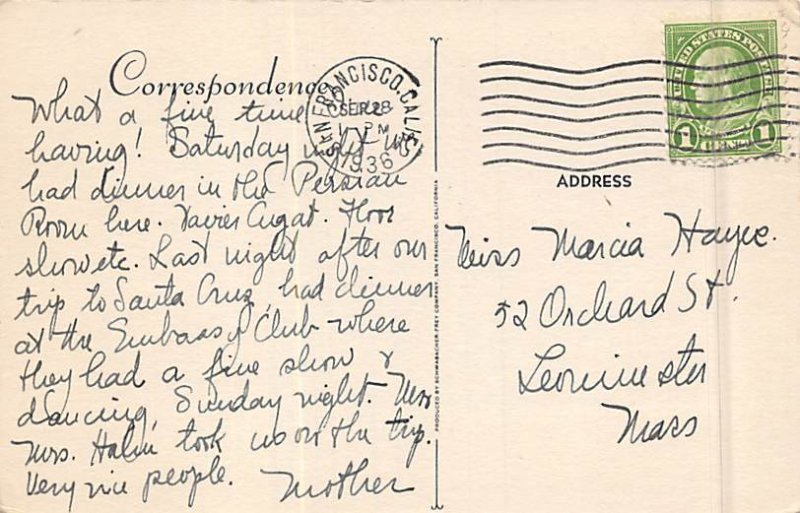 Correspondence
What a fine time
having! Saturday night we
had dinner in the Persian
Room here. Xavier Cugat. Floor
show etc. Last night after our
trip to Santa Cruz, had dinner
at the Embassy Club where
they had a fine show &
dancing, Sunday night.
Mrs. took us on the trip.
Very nice people. Mother
SAN FRANCISCO, CALIF.
SEP 28
PM
1936
UNITED STATES POSTAGE
1 CENT 1
ADDRESS
Miss Marcia Hayes.
52 Orchard St.
Leominster
Mass
PRODUCED BY SCHWABACHER-FREY COMPANY, SAN FRANCISCO, CALIFORNIA